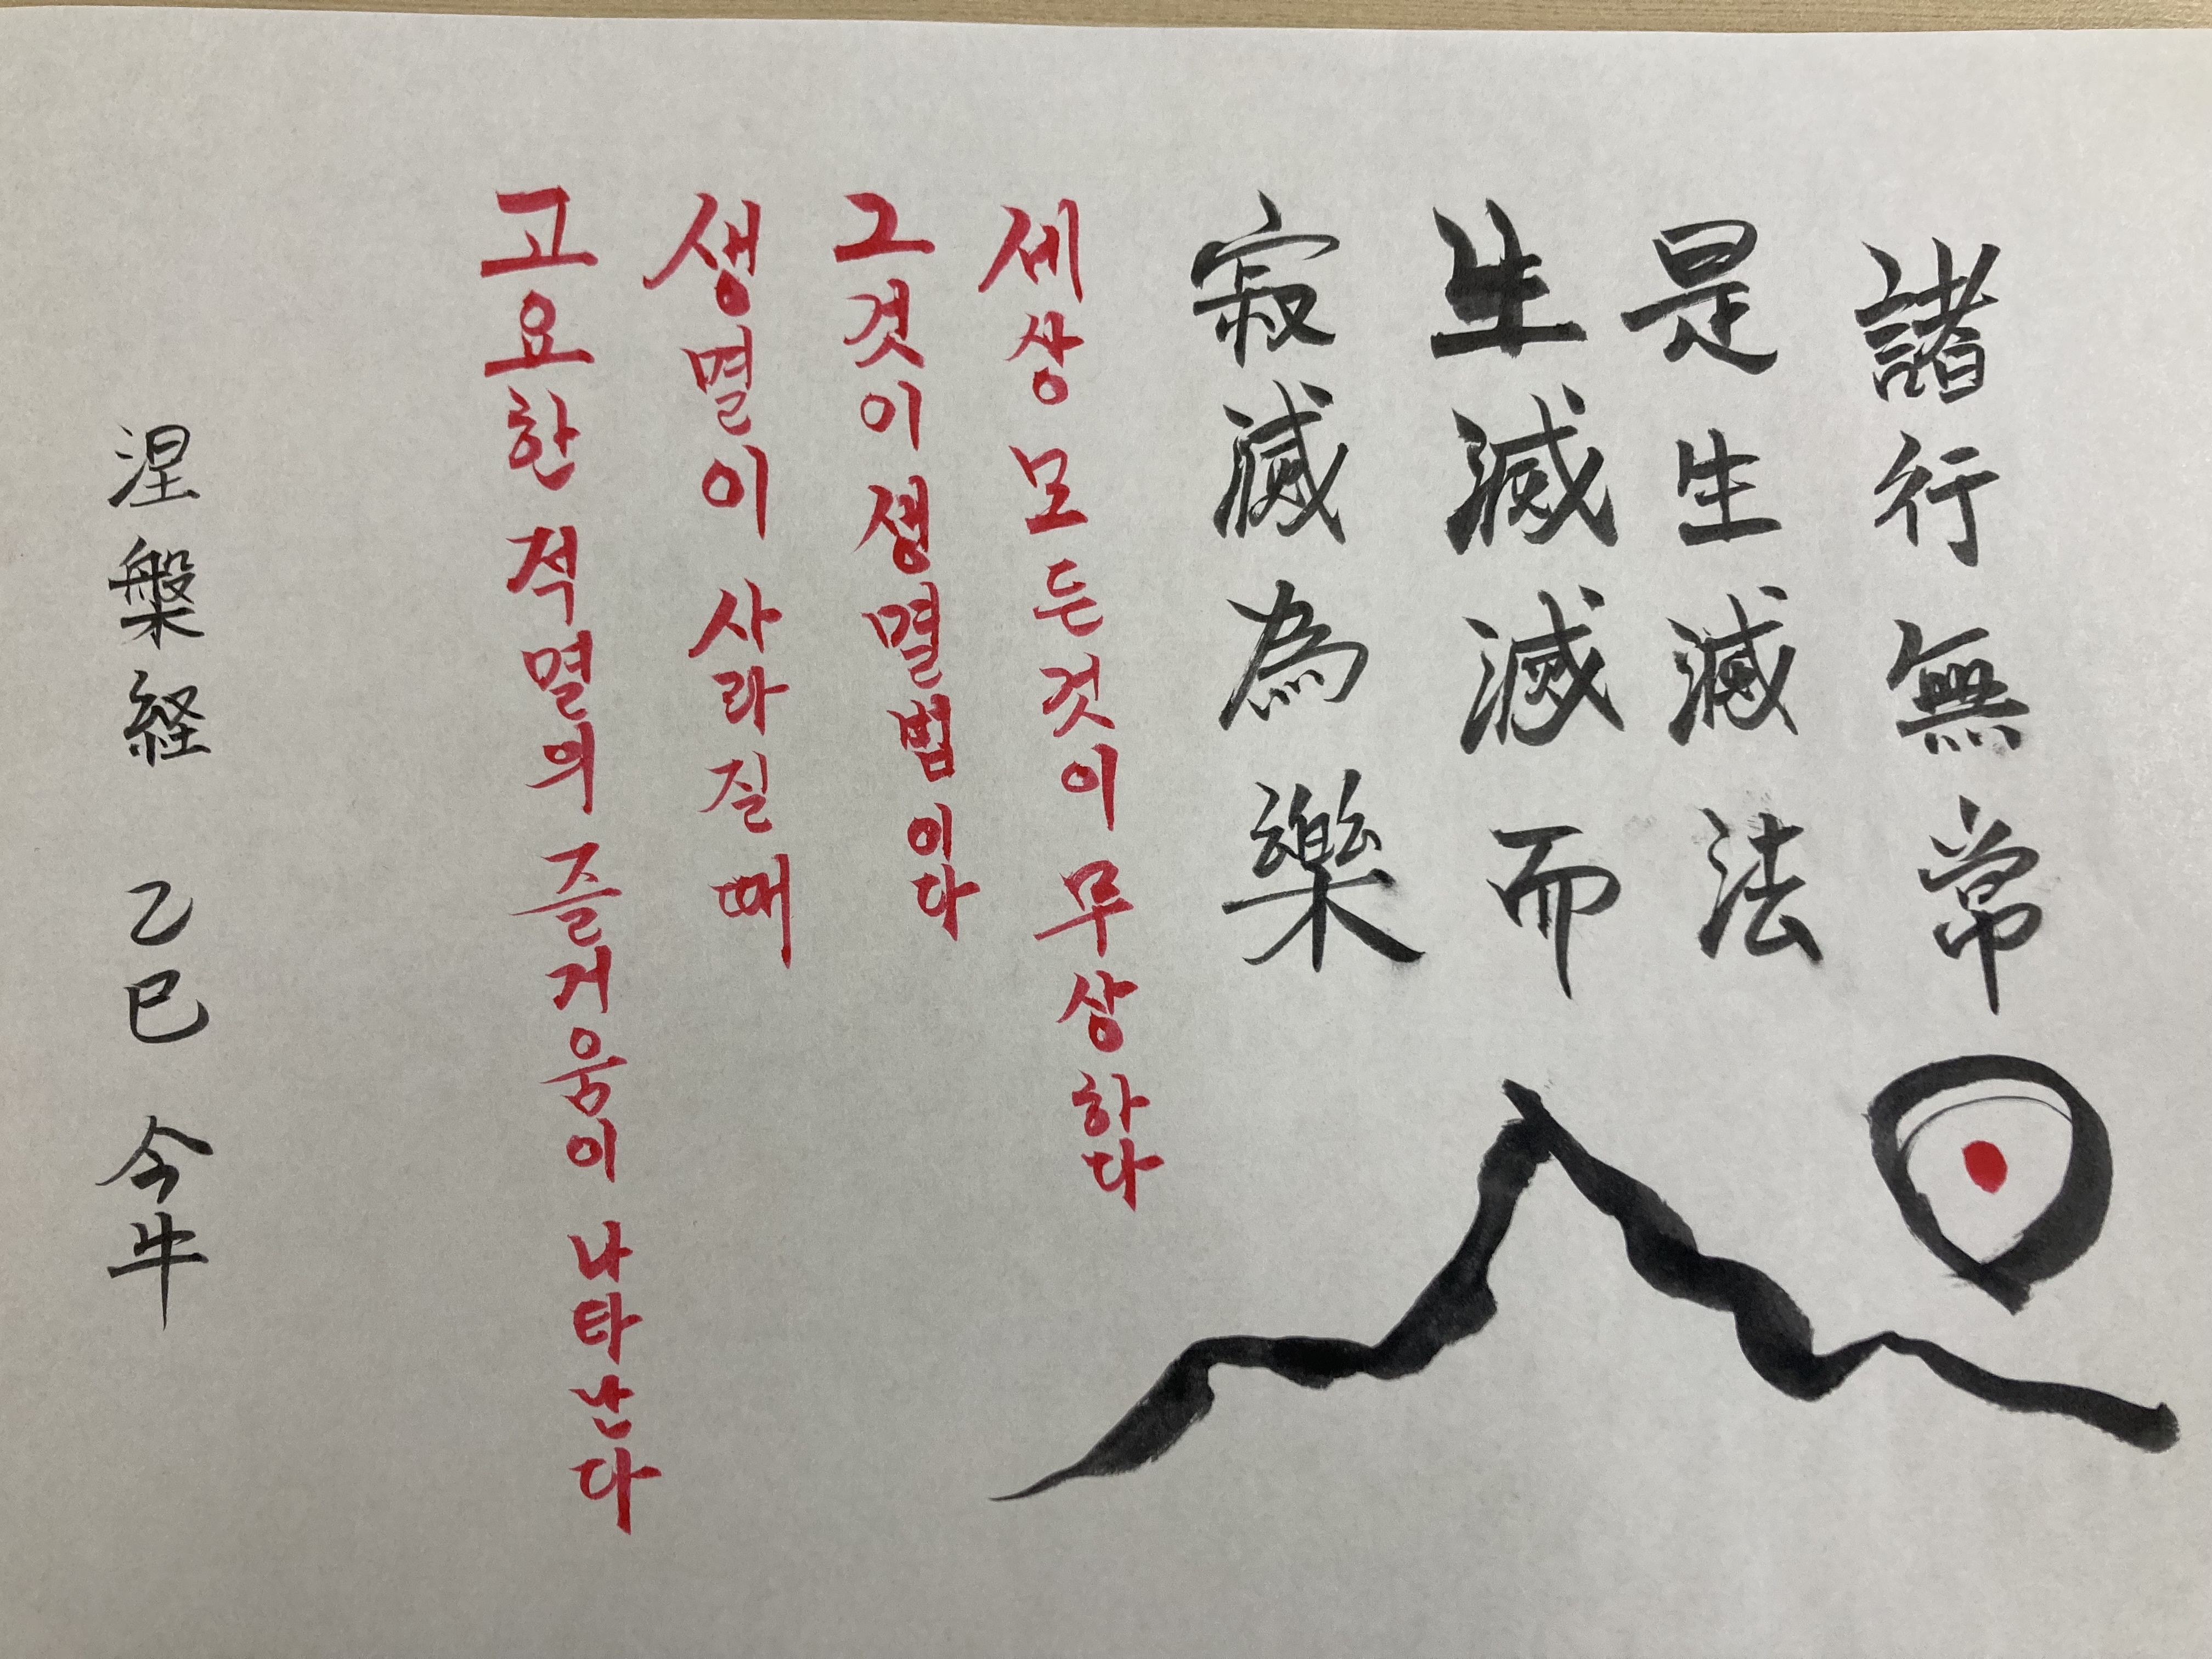 諸行無常
是生滅法
生滅滅而
寂滅為樂
세상 모든것이 무상하다
그것이 생멸법이다
생멸이 사라질 때
고요한 적멸의 즐거움이 나타난다
涅槃経 乙巳 今牛